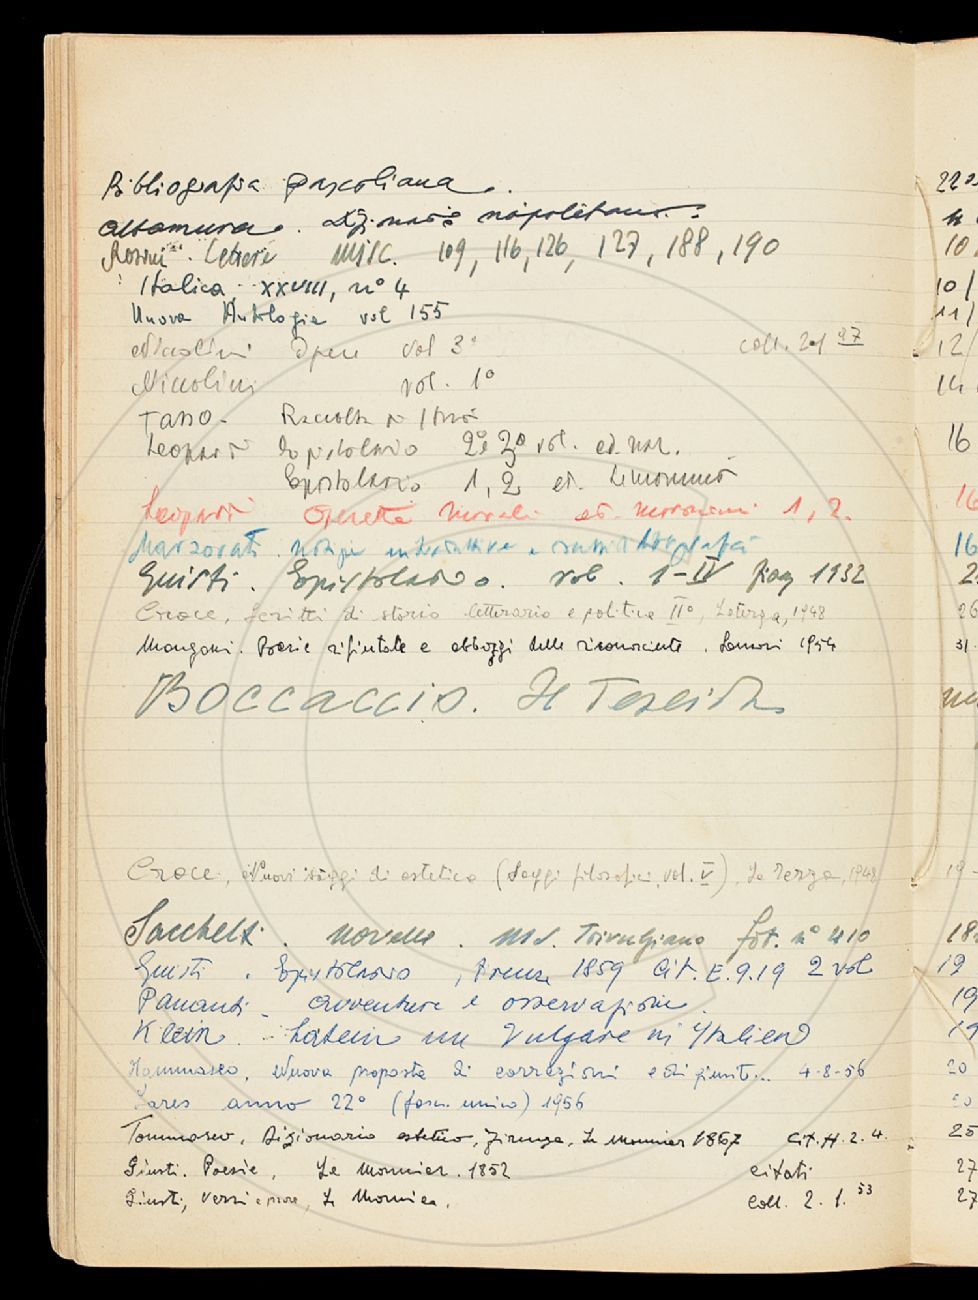 Bibliografia pascoliana.
Altamura. Dizionario napoletano.
Rosini. Lettere Misc. 109, 116, 126, 127, 188, 190
Italica XXVIII, n° 4
Nuova Antologia vol 155
Niccolini Opere vol 3° coll. 2.1 97
Niccolini vol. 1°
Tasso - Raccolta di
Leopardi Epistolario 2° e 3° vol. ed.
Epistolario 1, 2 ed. Le Monnier
Leopardi Operette Morali ed. 1, 2.
Marzorati. Notizie introduttive e
Giusti. Epistolario. vol. 1-IV 1932
Croce, Scritti di storia letteraria e politica II°, Laterza, 1948
Manzoni. Poesie rifiutate e abbozzi delle riconosciute. Sansoni 1954
Boccaccio. Il Teseida
Croce, Nuovi saggi di estetica (Saggi filosofici, vol. V), La Terza, 1948
Sacchetti. Novelle. Ms. Trivulziano fot. n° 410
Giusti. Epistolario, Firenze 1859 Cit. E.9.19 2 vol
Pananti - Avventure e osservazioni.
Klein. Latein und Volgare in Italien
Tommaseo, Nuova proposta di correzioni e di giunte... 4-8-56
Lares anno 22° (fasc. unico) 1956
Tommaseo, Dizionario estetico, Firenze, Le Monnier 1867 Cit. H. 2. 4.
Giusti. Poesie, Le Monnier. 1852 citati
Giusti, Versi e prose, Le Monnier. Coll. 2. 1. 53
10
10/
11/
12/
14
16
16
16
26
31.
19
19
19
20
20
25
27
27